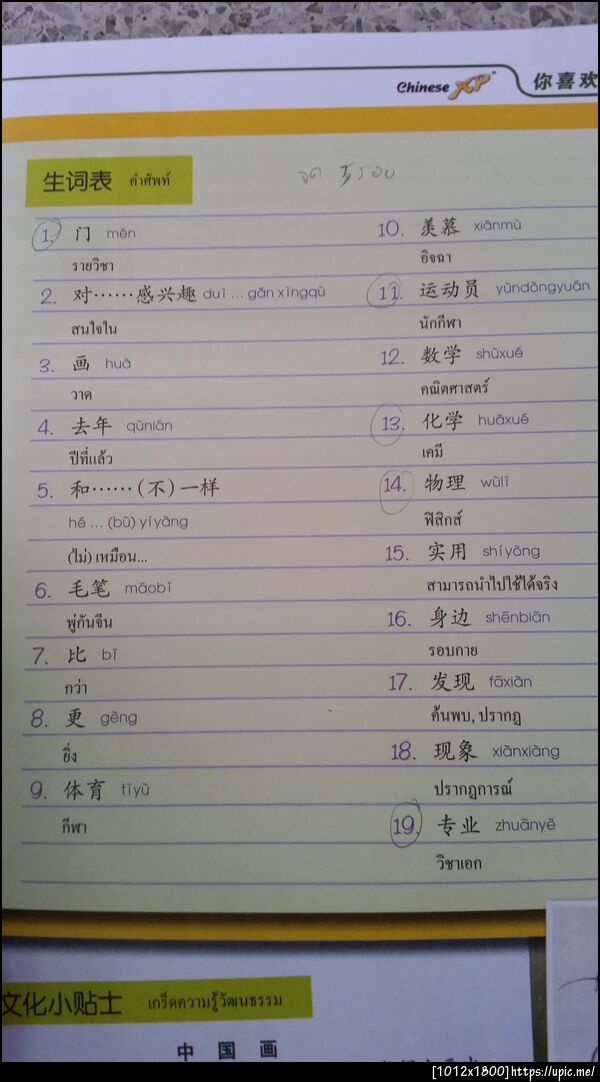 Chinese XP
你喜欢
生词表 คำศัพท์
1. 门 mén
รายวิชา
2. 对……感兴趣 duì ... gǎn xìngqù
สนใจใน
3. 画 huà
วาด
4. 去年 qùnián
ปีที่แล้ว
5. 和……（不）一样
hé ... (bù) yíyàng
(ไม่) เหมือน...
6. 毛笔 máobǐ
พู่กันจีน
7. 比 bǐ
กว่า
8. 更 gèng
ยิ่ง
9. 体育 tǐyù
กีฬา
10. 羡慕 xiànmù
อิจฉา
11. 运动员 yùndòngyuán
นักกีฬา
12. 数学 shùxué
คณิตศาสตร์
13. 化学 huàxué
เคมี
14. 物理 wùlǐ
ฟิสิกส์
15. 实用 shíyòng
สามารถนำไปใช้ได้จริง
16. 身边 shēnbiān
รอบกาย
17. 发现 fāxiàn
ค้นพบ, ปรากฏ
18. 现象 xiànxiàng
ปรากฏการณ์
19. 专业 zhuānyè
วิชาเอก
文化小贴士 เกร็ดความรู้วัฒนธรรม
中国画
[1012x1800]https://upic.me/